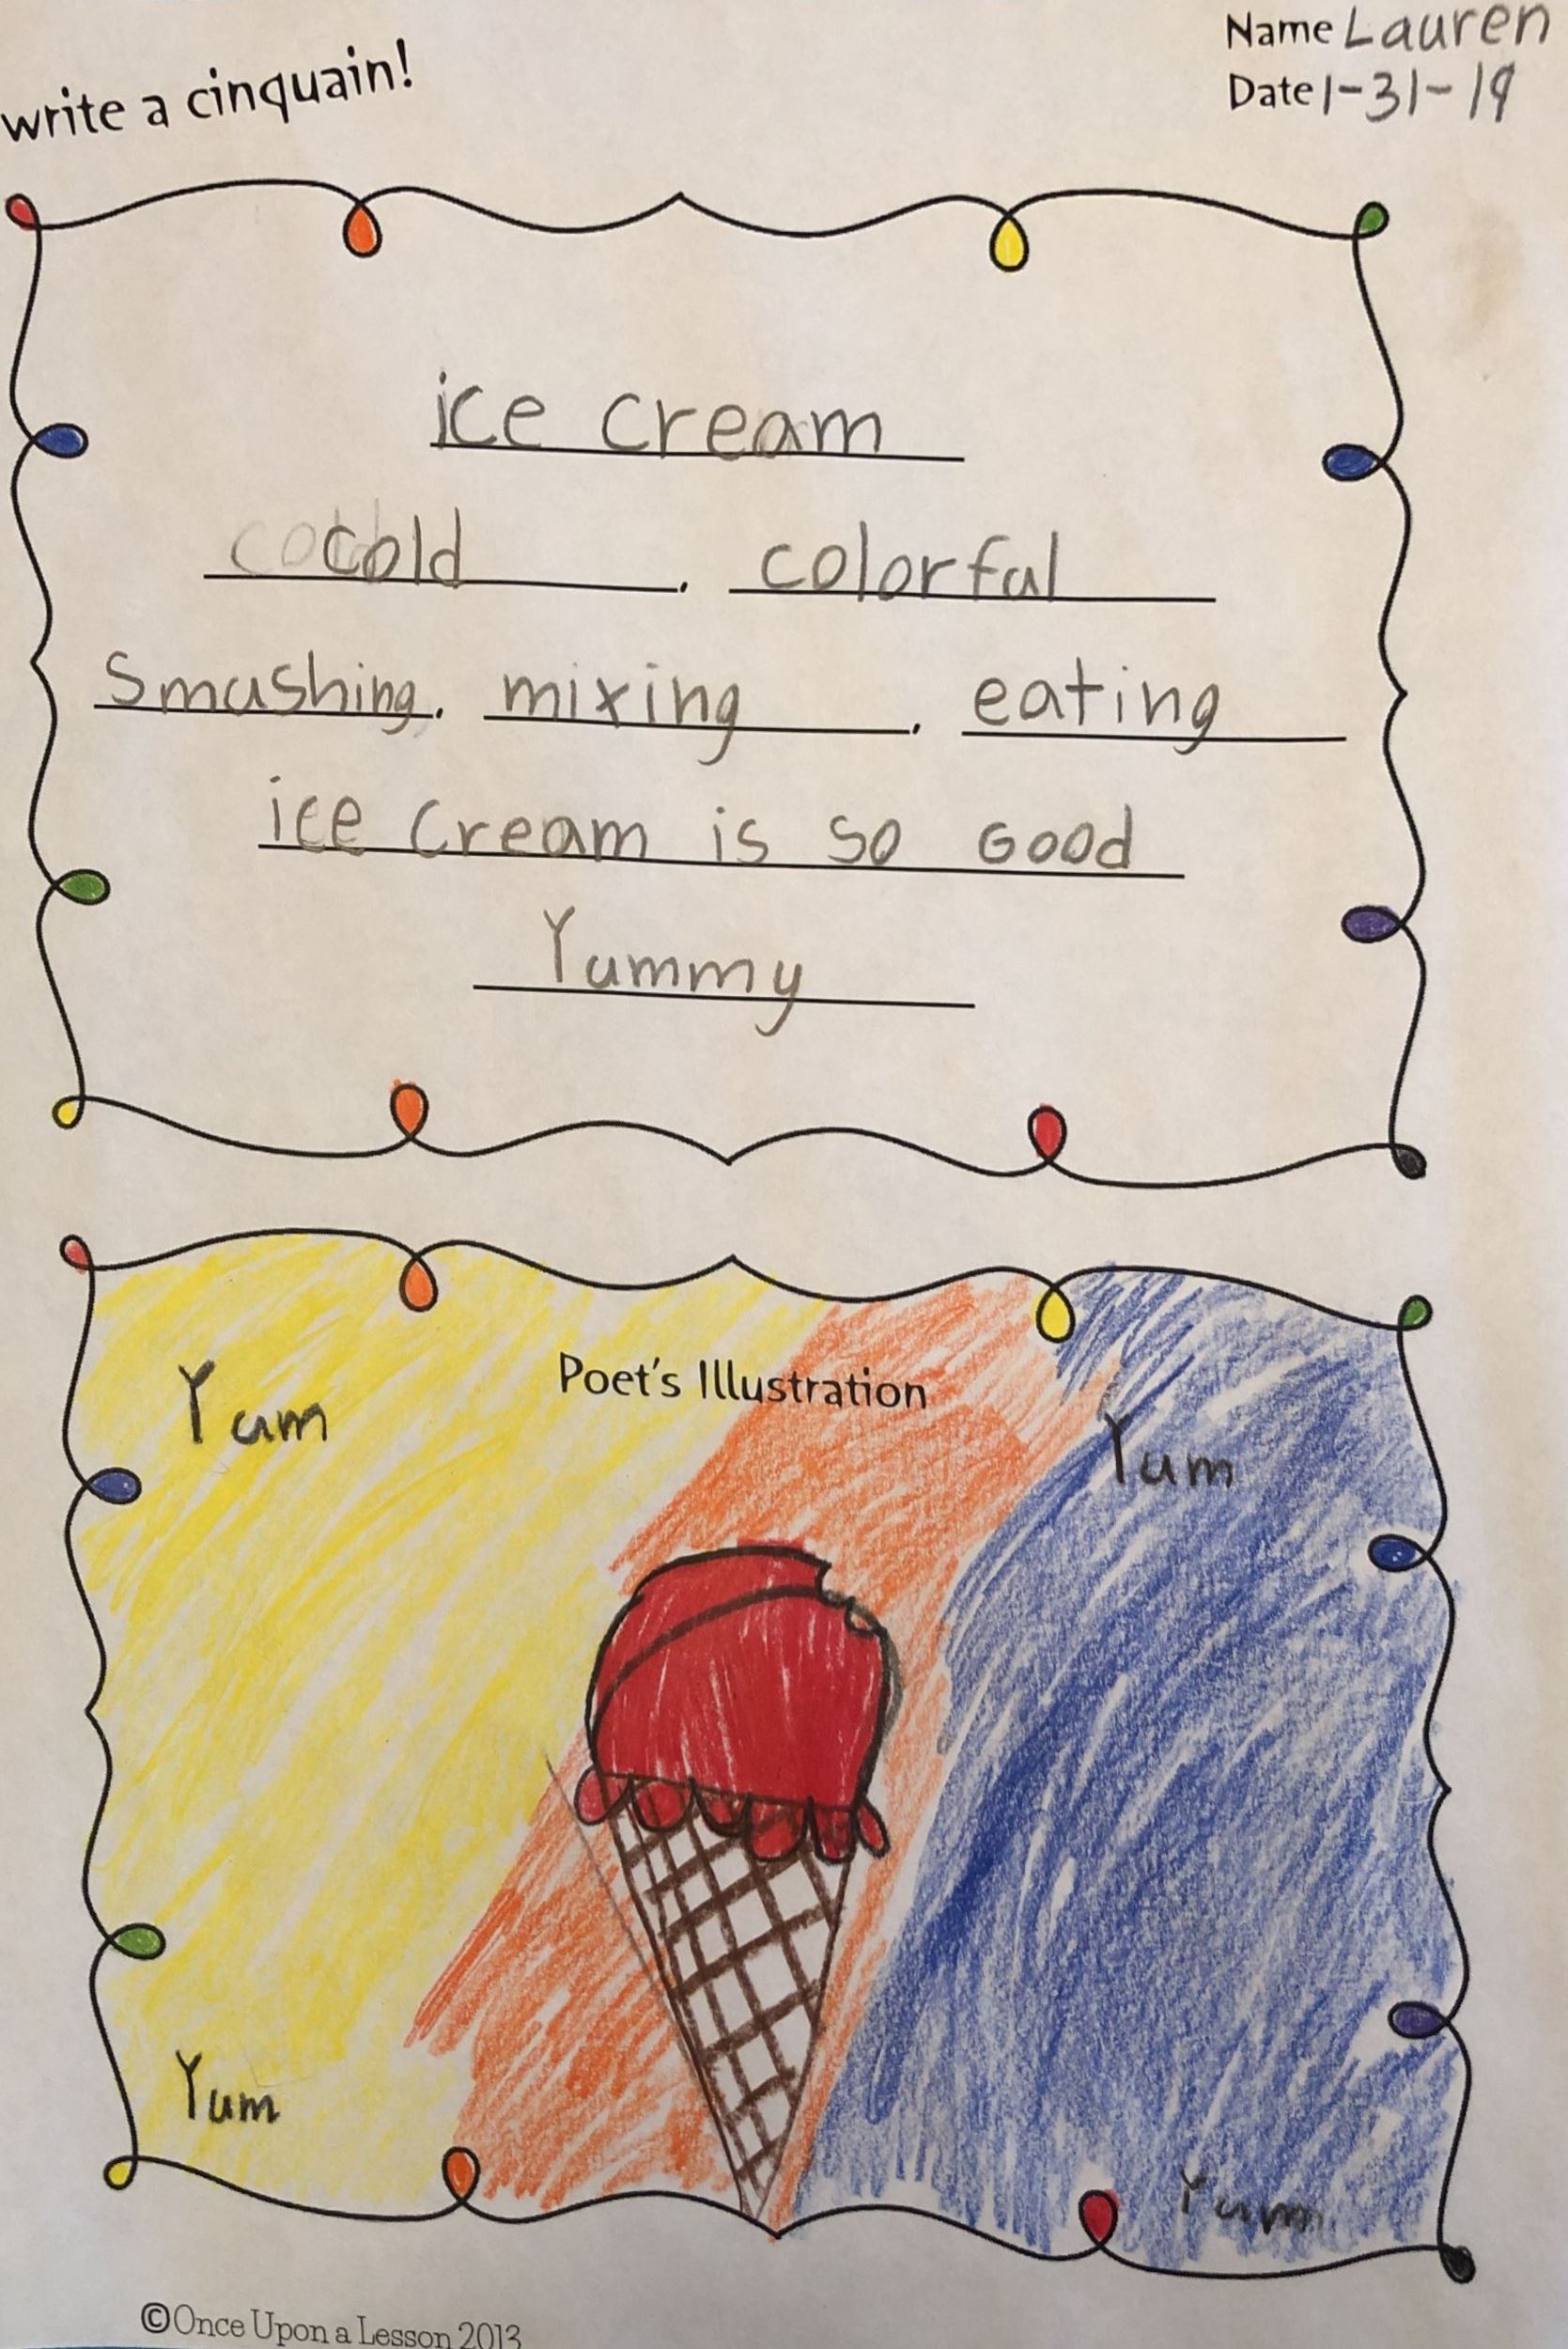 write a cinquain!
Name Lauren
Date 1-31-19
ice cream
cold, colorful
Smushing, mixing, eating
ice cream is so Good
Yummy
Poet's Illustration
Yum
Yum
Yum
Yum
©Once Upon a Lesson 2013